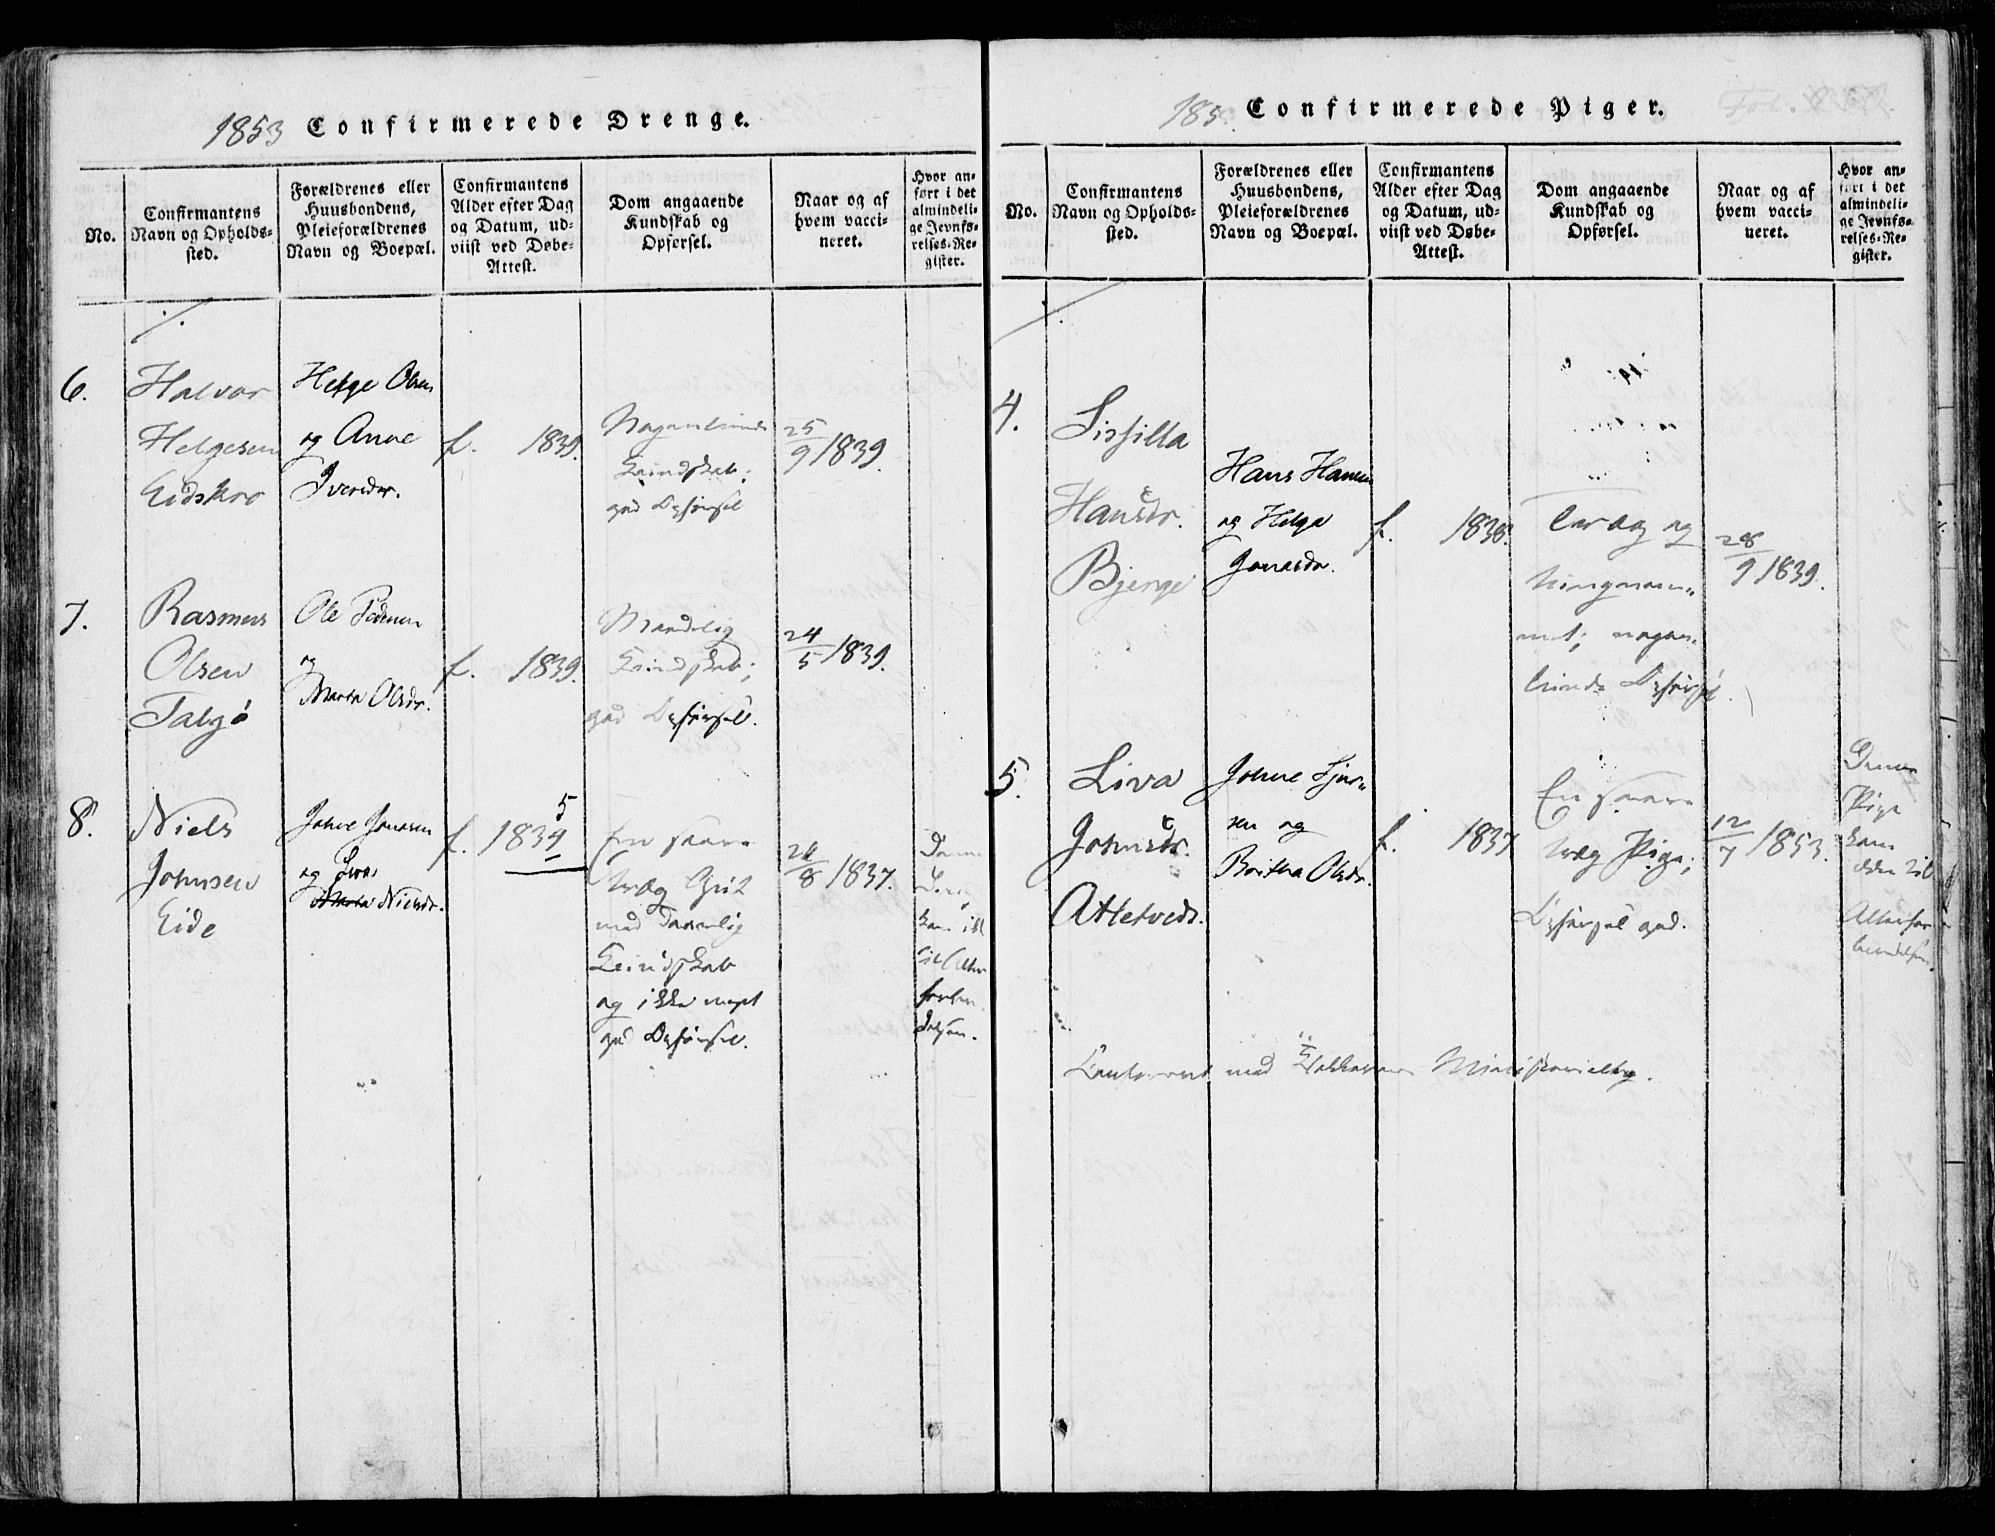 1853 Confirmerede Drenge.
No.
Confirmantens
Navn og Opholds-
sted.
Forældrenes eller
Huusbondens,
Pleieforældrenes
Navn og Boepæl.
Confirmantens
Alder efter Dag
og Datum, ud-
viist ved Døbe-
Attest.
Dom angaaende
Kundskab og
Opførsel.
Naar og af
hvem vacci-
neret.
Hvor an-
ført i det
almindeli-
ge Jevnfø-
relses-Re-
gister.
6.
Halvor
Helgesen
Eidskor
Helge Olsen
og Anne
Iversdr.
f. 1839.
Kundskab;
god Opførsel
25/9 1839.
7.
Rasmus
Olsen
Talgö
Ole
og
Marta Olsdr.
f. 1839.
Maadelig
Kundskab;
god Opførsel.
24/5 1839.
8.
Niels
Johnsen
Eide
Johne Jonasen
og
Nielsdr.
5
f. 1834
En saare
svag Gut
med daarlig
Kundskab
og ikke
god Opførsel.
26/8 1837.
185 Confirmerede Piger.
No.
Confirmantens
Navn og Opholds-
sted.
Forældrenes eller
Huusbondens,
Pleieforældrenes
Navn og Boepæl.
Confirmantens
Alder efter Dag
og Datum, ud-
viist ved Døbe-
Attest.
Dom angaaende
Kundskab og
Opførsel.
Naar og af
hvem vacci-
neret.
Hvor an-
ført i det
almindeli-
ge Jevnfø-
relses-Re-
gister.
4.
Sissilla
Hansdr.
Bjerge
Hans Hansen
og Helga
Jonasdr.
f. 1838.
og
Opførsel
28/9 1839.
5.
Liva
Johnsdr.
Atletveds.
Johne
sen og
Britha Olsdr.
f. 1837
En saare
svag Pige;
Opførsel god.
12/7 1853.
Denne
Pige
kom
ikke til
Alterfor
med